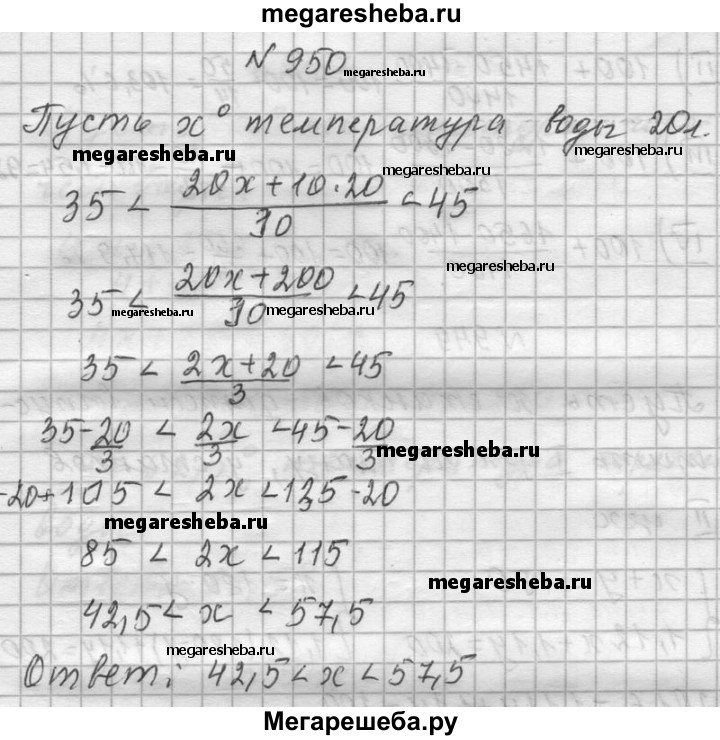 megaresheba.ru
№ 950
megaresheba.ru
Пусть x° температура воды 20л.
megaresheba.ru
megaresheba.ru
35 < (20x + 10·20)/30 < 45
megaresheba.ru
35 < (20x + 200)/30 < 45
megaresheba.ru
megaresheba.ru
megaresheba.ru
35 < (2x + 20)/3 < 45
35 - 20/3 < 2x/3 < 45 - 20/3
megaresheba.ru
-20 + 105 < 2x < 135 - 20
megaresheba.ru
85 < 2x < 115
megaresheba.ru
42,5 < x < 57,5
megaresheba.ru
Ответ: 42,5 < x < 57,5
Мегарешеба.ру